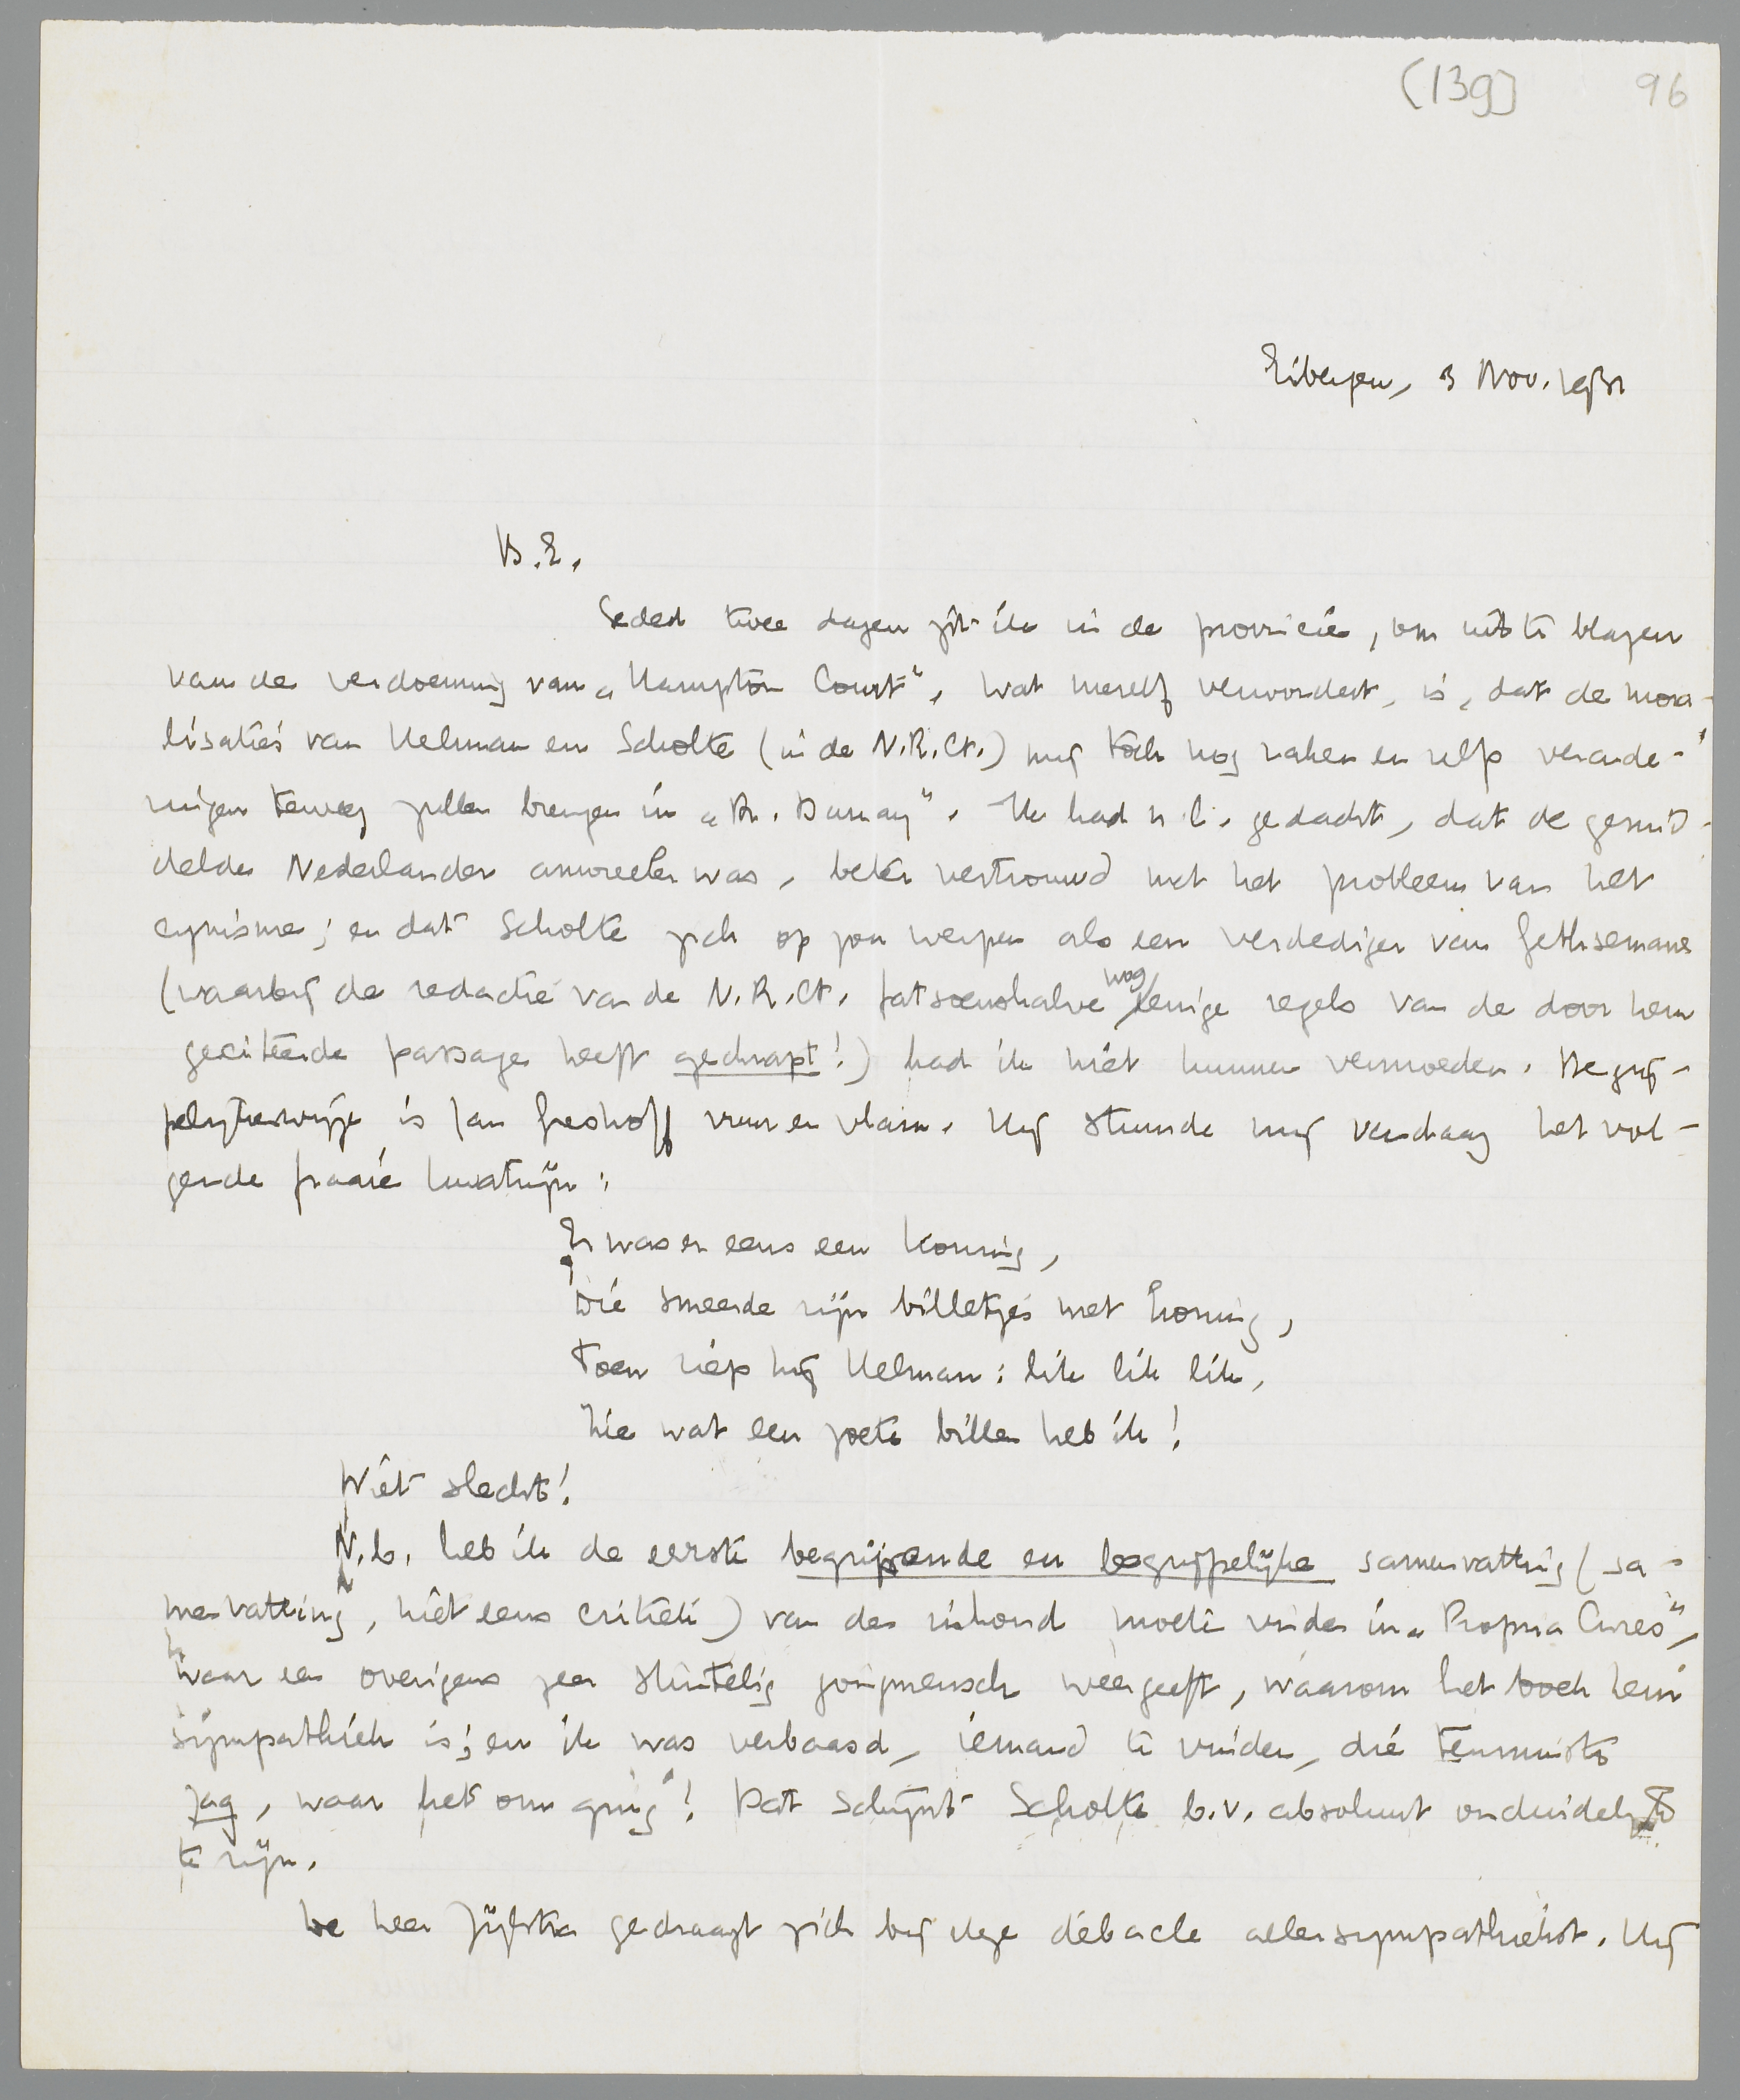 (139) 96
Eibergen, 3 Nov. 1931
B.E.
Sedert twee dagen zit ik in de provincie, om uit te blazen
van de verdoeming van „Hampton Court". Wat mezelf verwondert, is, dat de mora-
lisaties van Helman en Scholte (in de N.R.Ct.) mij toch nog raken en zelfs verande-
ringen teweeg zullen brengen in „Dr. Dumay". Ik had n.l. gedacht, dat de gemid-
delde Nederlander amoreeler was, beter vertrouwd met het probleem van het
cynisme; en dat Scholte zich op zou werpen als een verdediger van Gethsemane
(waarbij de redactie van de N.R.Ct. fatsoenshalve nog eenige regels van de door hem
geciteerde passage heeft geschrapt!) had ik niet kunnen vermoeden. Begrij-
pelijkerwijze is Jan Greshoff vuur en vlam. Hij stuurde mij vandaag het vol-
gende fraaie kwatrijn:
Er was er eens een koning,
Die smeerde zijn billetjes met honing,
Toen riep hij Helman: lik lik lik,
Hie wat een zoete billen heb ik!
Niet slecht!
N.b. heb ik de eerste begrijpende en begrijpelijke samenvatting (sa-
menvatting, niet eens critiek) van den inhoud moeten vinden in „Propria Cures",
waar een overigens zeer stuntelig jongmensch weergeeft, waarom het boek hem
sympathiek is; en ik was verbaasd, iemand te vinden, die tenminste
zag, waar het om ging! Dat schijnt Scholte b.v. absoluut onduidelijk
te zijn.
De heer Zijlstra gedraagt zich bij deze débacle allersympathiekst. Hij